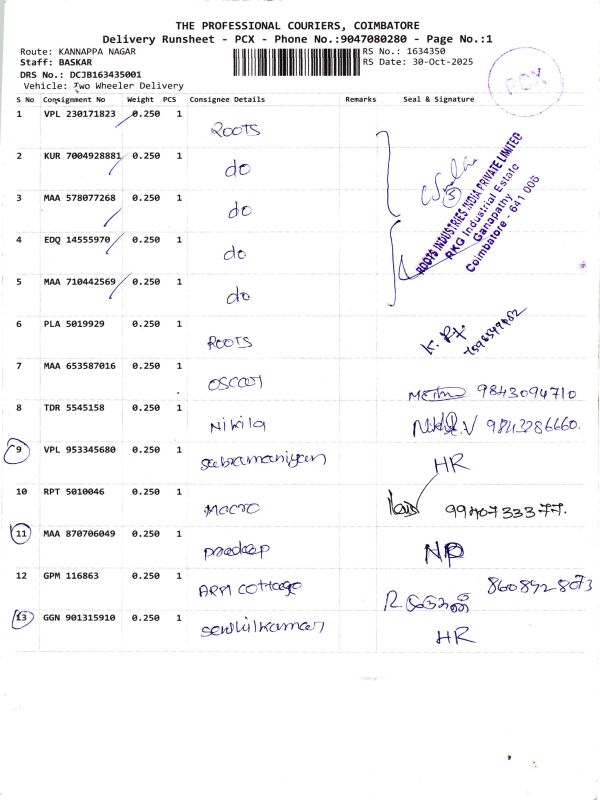 THE PROFESSIONAL COURIERS, COIMBATORE
Delivery Runsheet - PCX - Phone No.:9047080280 - Page No.:1
Route: KANNAPPA NAGAR
RS No.: 1634350
Staff: BASKAR
RS Date: 30-Oct-2025
DRS No.: DCJB163435001
Vehicle: Two Wheeler Delivery
PCX
S No Consignment No Weight PCS Consignee Details Remarks Seal & Signature
1 VPL 230171823 0.250 1 ROOTS
2 KUR 7004928881 0.250 1 do
3 MAA 578077268 0.250 1 do
4 EDQ 14555970 0.250 1 do
5 MAA 710442569 0.250 1 do
5
ROOTS INDUSTRIES INDIA PRIVATE LIMITED
RKG Industrial Estate
Ganapathy
Coimbatore - 641 006
6 PLA 5019929 0.250 1 ROOTS K.
7 MAA 653587016 0.250 1 OSCAR 9843094710
8 TDR 5545158 0.250 1 Nikila 9843286660.
9 VPL 953345680 0.250 1 subramaniyan HR
10 RPT 5010046 0.250 1 MACRO 9940733377.
11 MAA 870706049 0.250 1 pradeep NP
12 GPM 116863 0.250 1 ARM cottage 8608928073
13 GGN 901315910 0.250 1 senthilkumar HR